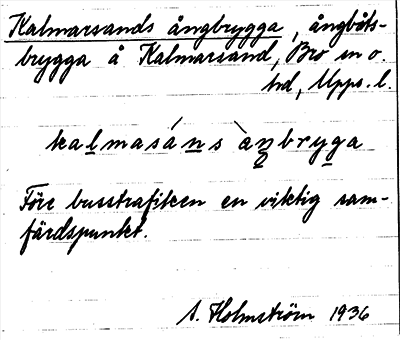 Kalmarsands ångbrygga, ångbåts-
brygga å Kalmarsand, Bro sn o.
hd, Upps. l.
kalmasáns àŋbryga
Före busstrafiken en viktig sam-
färdspunkt.
S. Holmström 1936